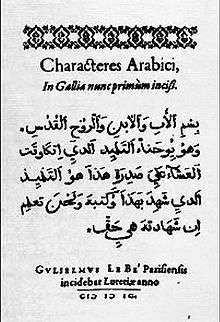 Characteres Arabici,
In Gallia nunc primùm incisi.
بسم الأب والابن والروح القدس.
وهو يوحنا التلميذ الذي اتكا وقت
العشا على صدره هذا هو التلميذ
الذي شهد بهذا وكتبه ونحن نعلم
ان شهادته هي حق.
GVLIELMVS LE BE' Parisiensis
incidebat Lutetiæ anno